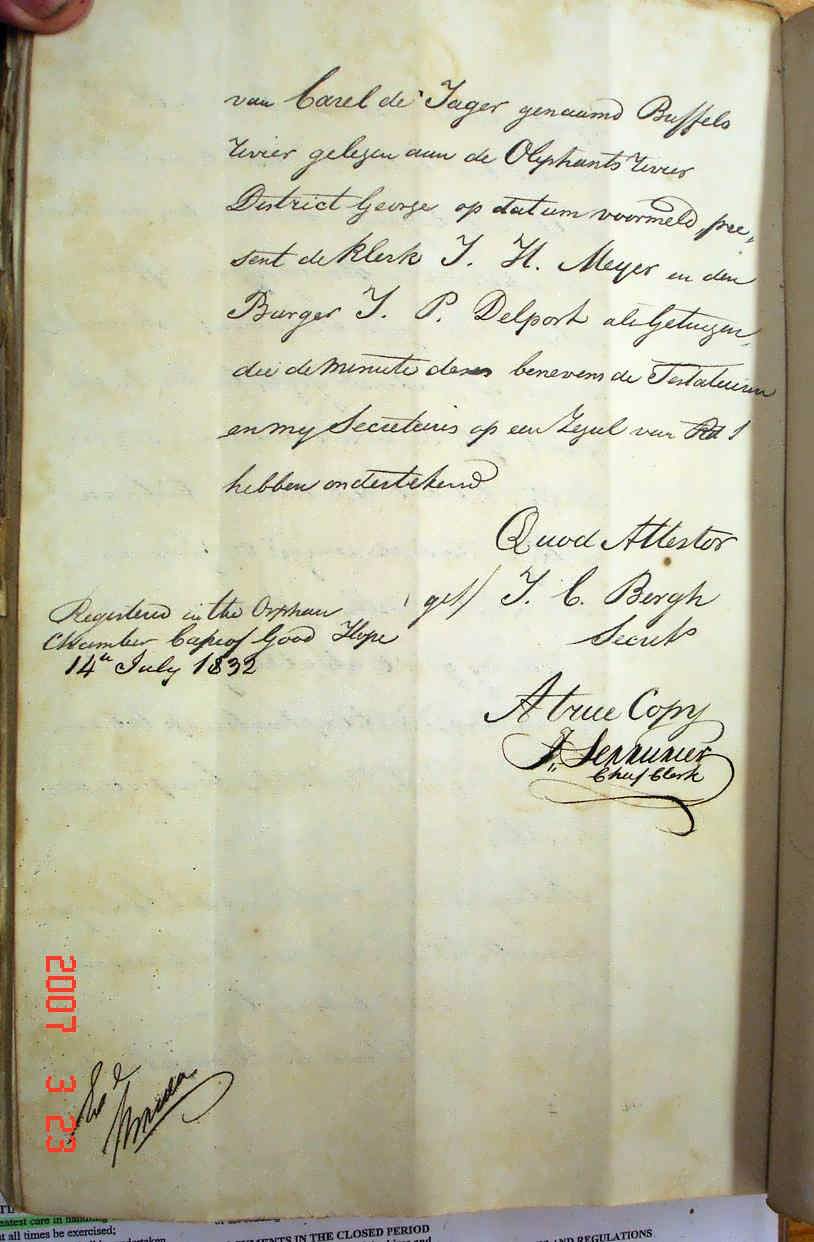 van Carel de Jager genaamd Buffels
rivier gelegen aan de Olyphants rivier
District George op datum voormeld pre„
sent de klerk J. H. Meyer en den
Burger J. P. Delport als Getuigen
die de minute deses benevens de Testateuren
en my Secretaris op een Zegul van Rd 1
hebben ondertekend
Quod Attestor
get/ J. C. Bergh
Secrets
Registered in the Orphan
Chamber Cape of Good Hope
14th July 1832
A true Copy
Serrurier
Chief Clerk
2007 3 23
eatest care in handling
t all times be exercised;
MENTS IN THE CLOSED PERIOD
AND REGULATIONS